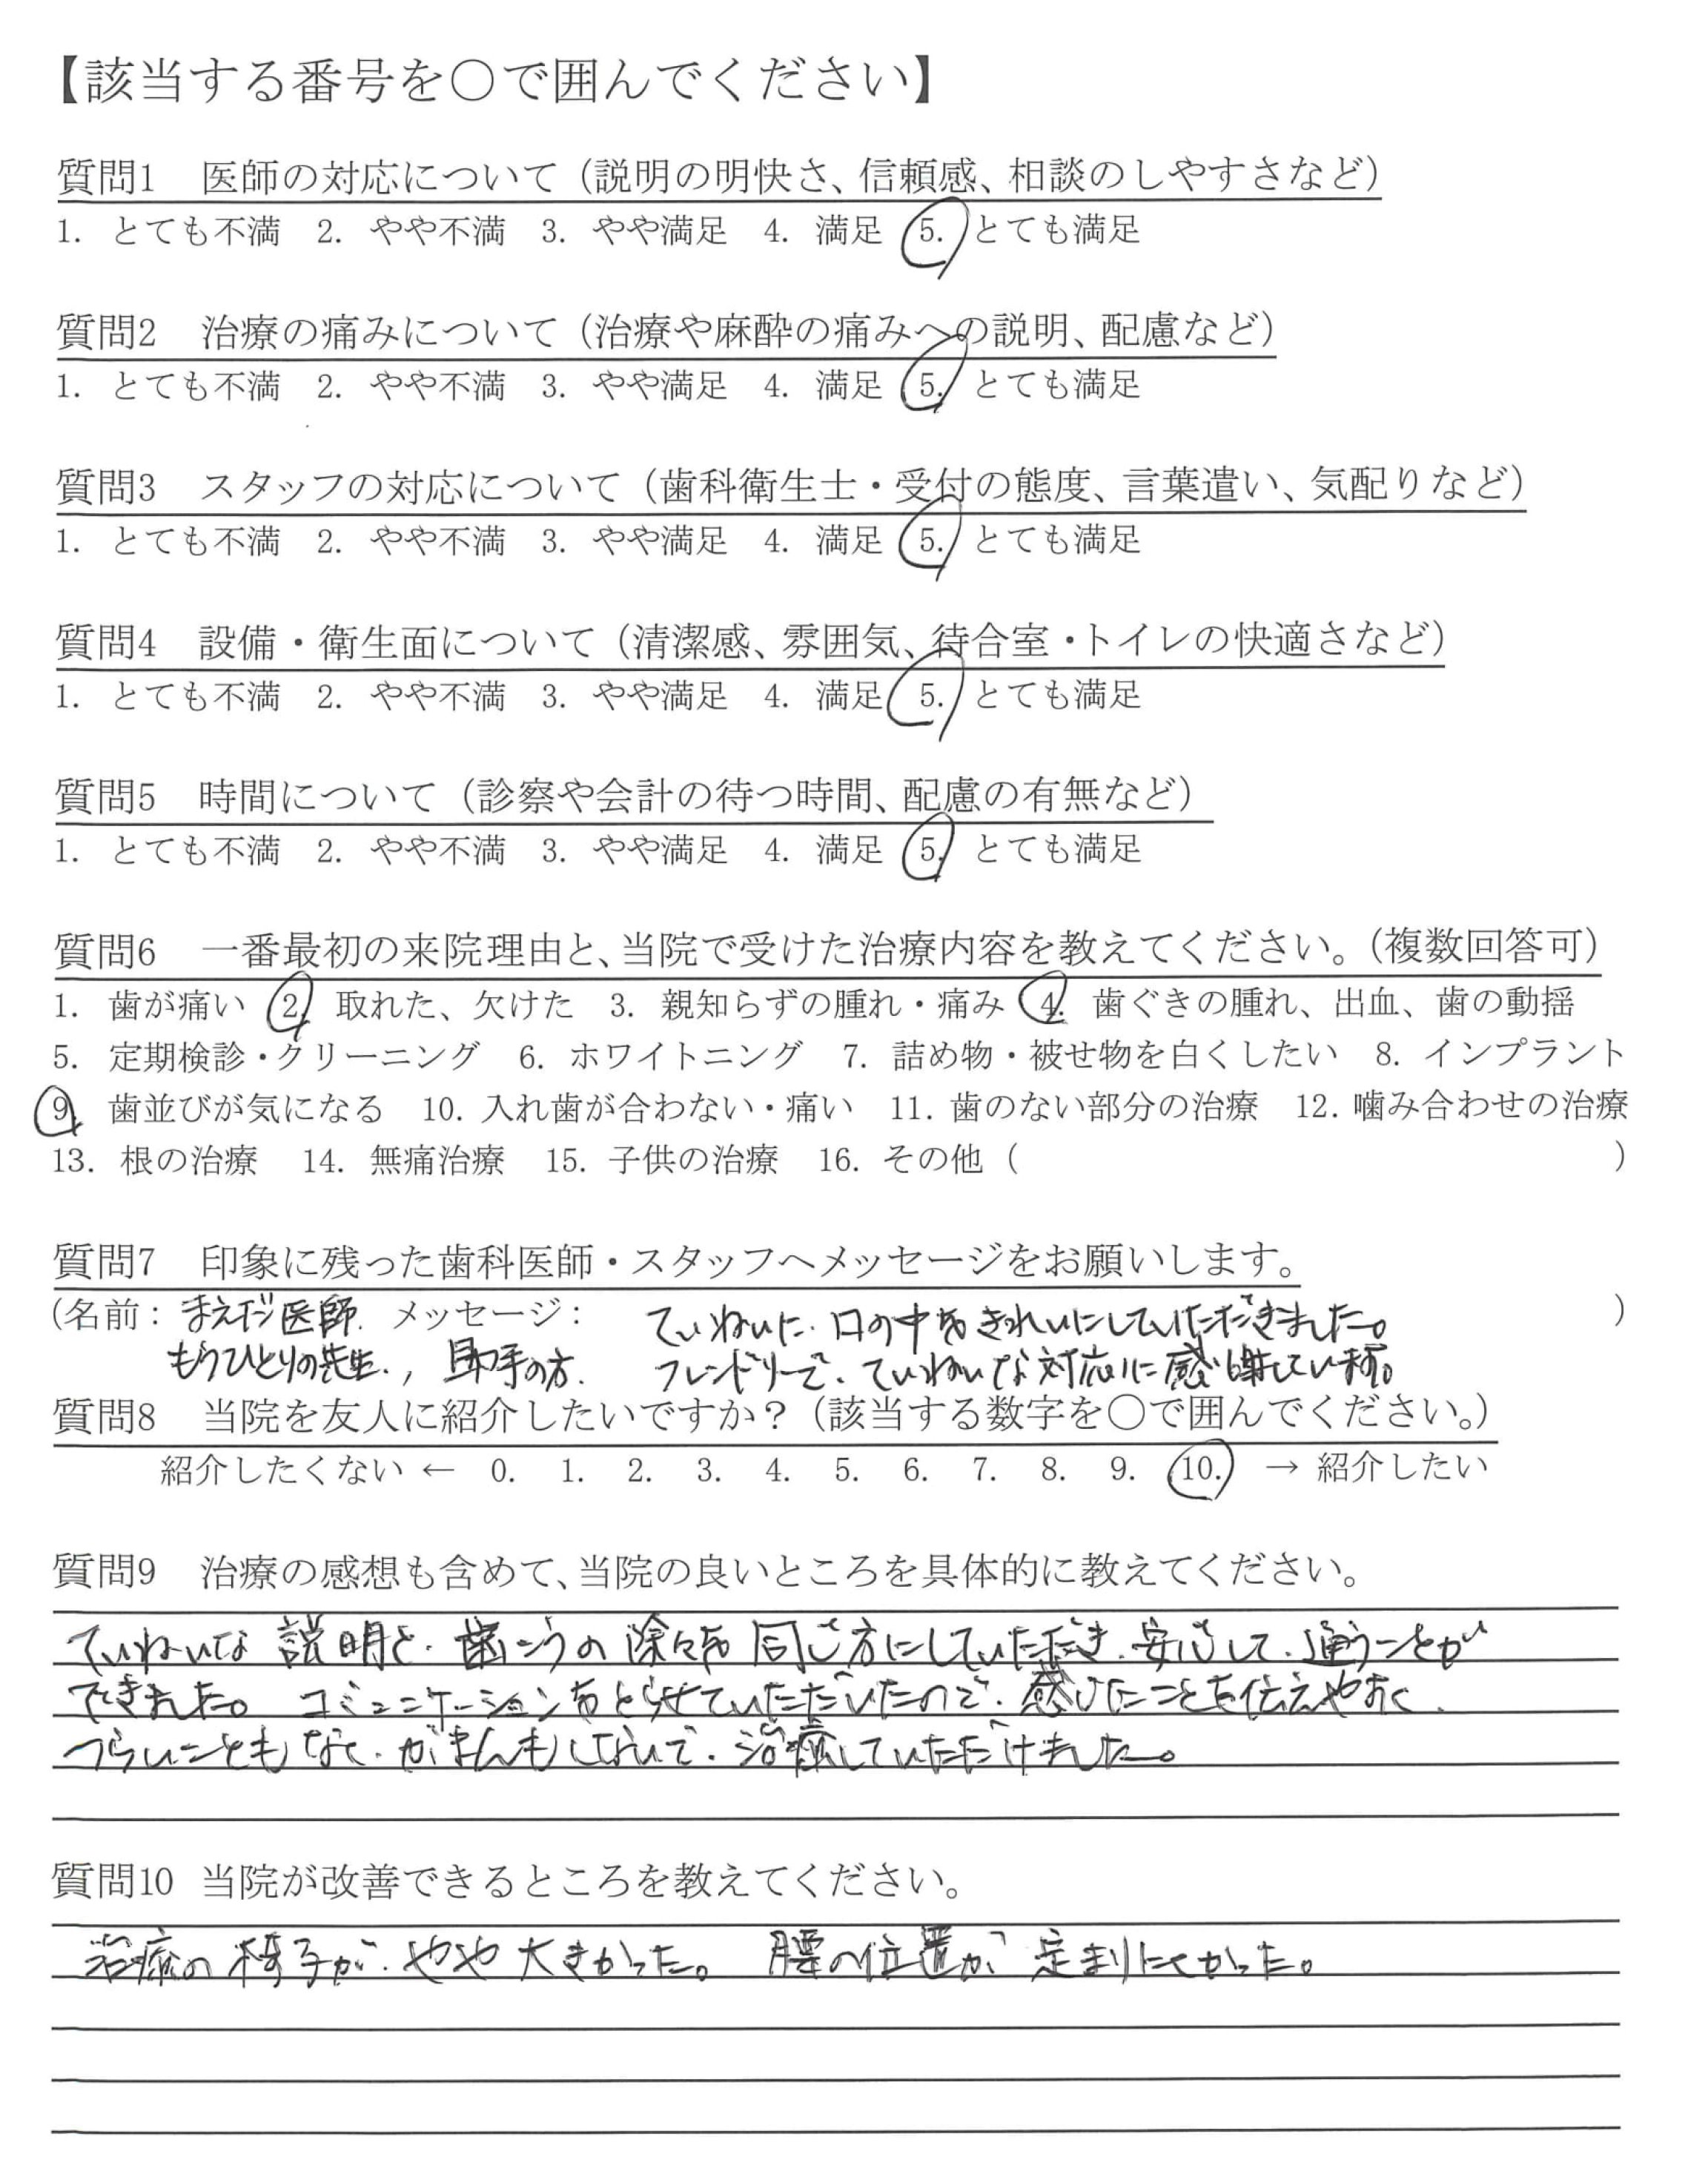 【該当する番号を○で囲んでください】
質問1　医師の対応について（説明の明快さ、信頼感、相談のしやすさなど）
1. とても不満　2. やや不満　3. やや満足　4. 満足　5. とても満足
質問2　治療の痛みについて（治療や麻酔の痛みへの説明、配慮など）
1. とても不満　2. やや不満　3. やや満足　4. 満足　5. とても満足
質問3　スタッフの対応について（歯科衛生士・受付の態度、言葉遣い、気配りなど）
1. とても不満　2. やや不満　3. やや満足　4. 満足　5. とても満足
質問4　設備・衛生面について（清潔感、雰囲気、待合室・トイレの快適さなど）
1. とても不満　2. やや不満　3. やや満足　4. 満足　5. とても満足
質問5　時間について（診察や会計の待つ時間、配慮の有無など）
1. とても不満　2. やや不満　3. やや満足　4. 満足　5. とても満足
質問6　一番最初の来院理由と、当院で受けた治療内容を教えてください。（複数回答可）
1. 歯が痛い　2. 取れた、欠けた　3. 親知らずの腫れ・痛み　4. 歯ぐきの腫れ、出血、歯の動揺
5. 定期検診・クリーニング　6. ホワイトニング　7. 詰め物・被せ物を白くしたい　8. インプラント
9. 歯並びが気になる　10. 入れ歯が合わない・痛い　11. 歯のない部分の治療　12. 噛み合わせの治療
13. 根の治療　14. 無痛治療　15. 子供の治療　16. その他（　　　）
質問7　印象に残った歯科医師・スタッフへメッセージをお願いします。
（名前：まえだ医師.　メッセージ：　ていねいに.口の中をきれいにしていただきました。）
もうひとりの先生.,　助手の方.　フレンドリーで.ていねいな対応に感謝しています。
質問8　当院を友人に紹介したいですか？（該当する数字を○で囲んでください。）
紹介したくない ← 0.　1.　2.　3.　4.　5.　6.　7.　8.　9.　10.　→ 紹介したい
質問9　治療の感想も含めて、当院の良いところを具体的に教えてください。
ていねいな 説明と.歯こうの 除々を 同じ方にしていただき.安心して.通うことが
できました。コミュニケーションをとらせていただいたので.感じたことを伝えやすく.
つらいこともなく.がまんもしないで.治療していただけました。
質問10　当院が改善できるところを教えてください。
治療の 椅子が.やや 大きかった。　腰の位置が 定まりにくかった。